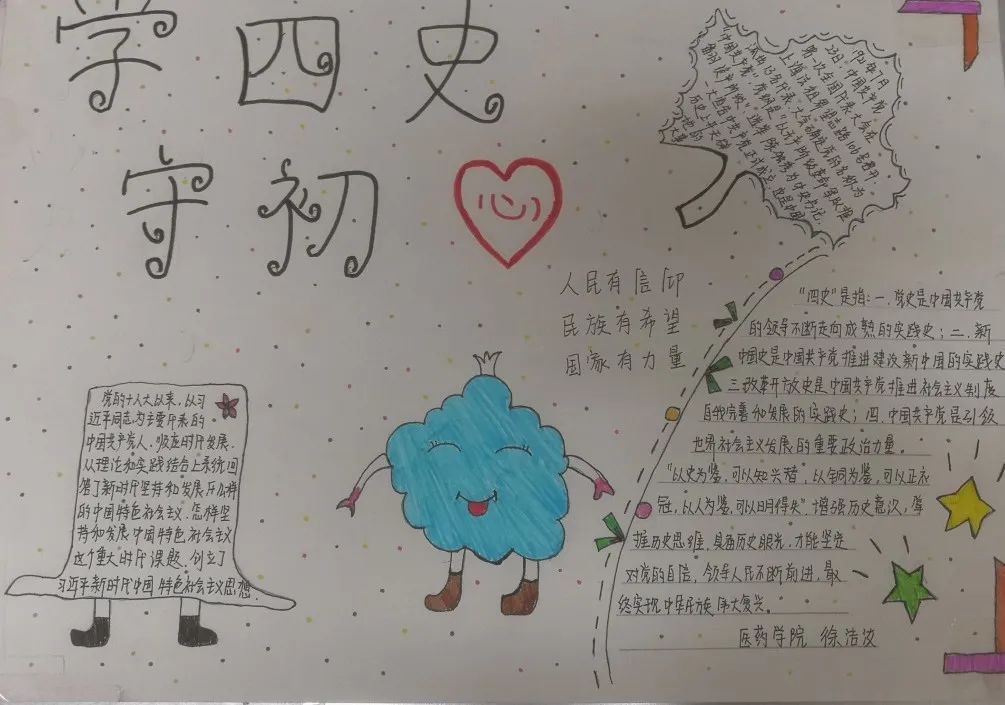 学四史
守初心
1921年7月
23日，中国共产党
第一次全国代表大会在
上海法租界望志路106号召开，
人民有信仰
民族有希望
国家有力量
"四史"是指：一.党史是中国共产党
的领导不断走向成熟的实践史；二.新
中国史是中国共产党推进建设新中国的实践史
三.改革开放史是中国共产党推进社会主义制度
自我完善和发展的实践史；四.中国共产党是引领
世界社会主义发展的重要政治力量。
"以史为鉴，可以知兴替，以铜为鉴，可以正衣
冠，以人为鉴，可以明得失".增强历史意识，掌
握历史思维，具备历史眼光，才能坚定
对党的自信，领导人民不断前进，最
终实现中华民族伟大复兴。
医药学院 徐洁波
党的十八大以来，以习
近平同志为主要代表的
中国共产党人，顺应时代发展，
从理论和实践结合上系统回
答了新时代坚持和发展什么样
的中国特色社会主义，怎样坚
持和发展中国特色社会主义
这个重大时代课题，创立了
习近平新时代中国特色社会主义思想.